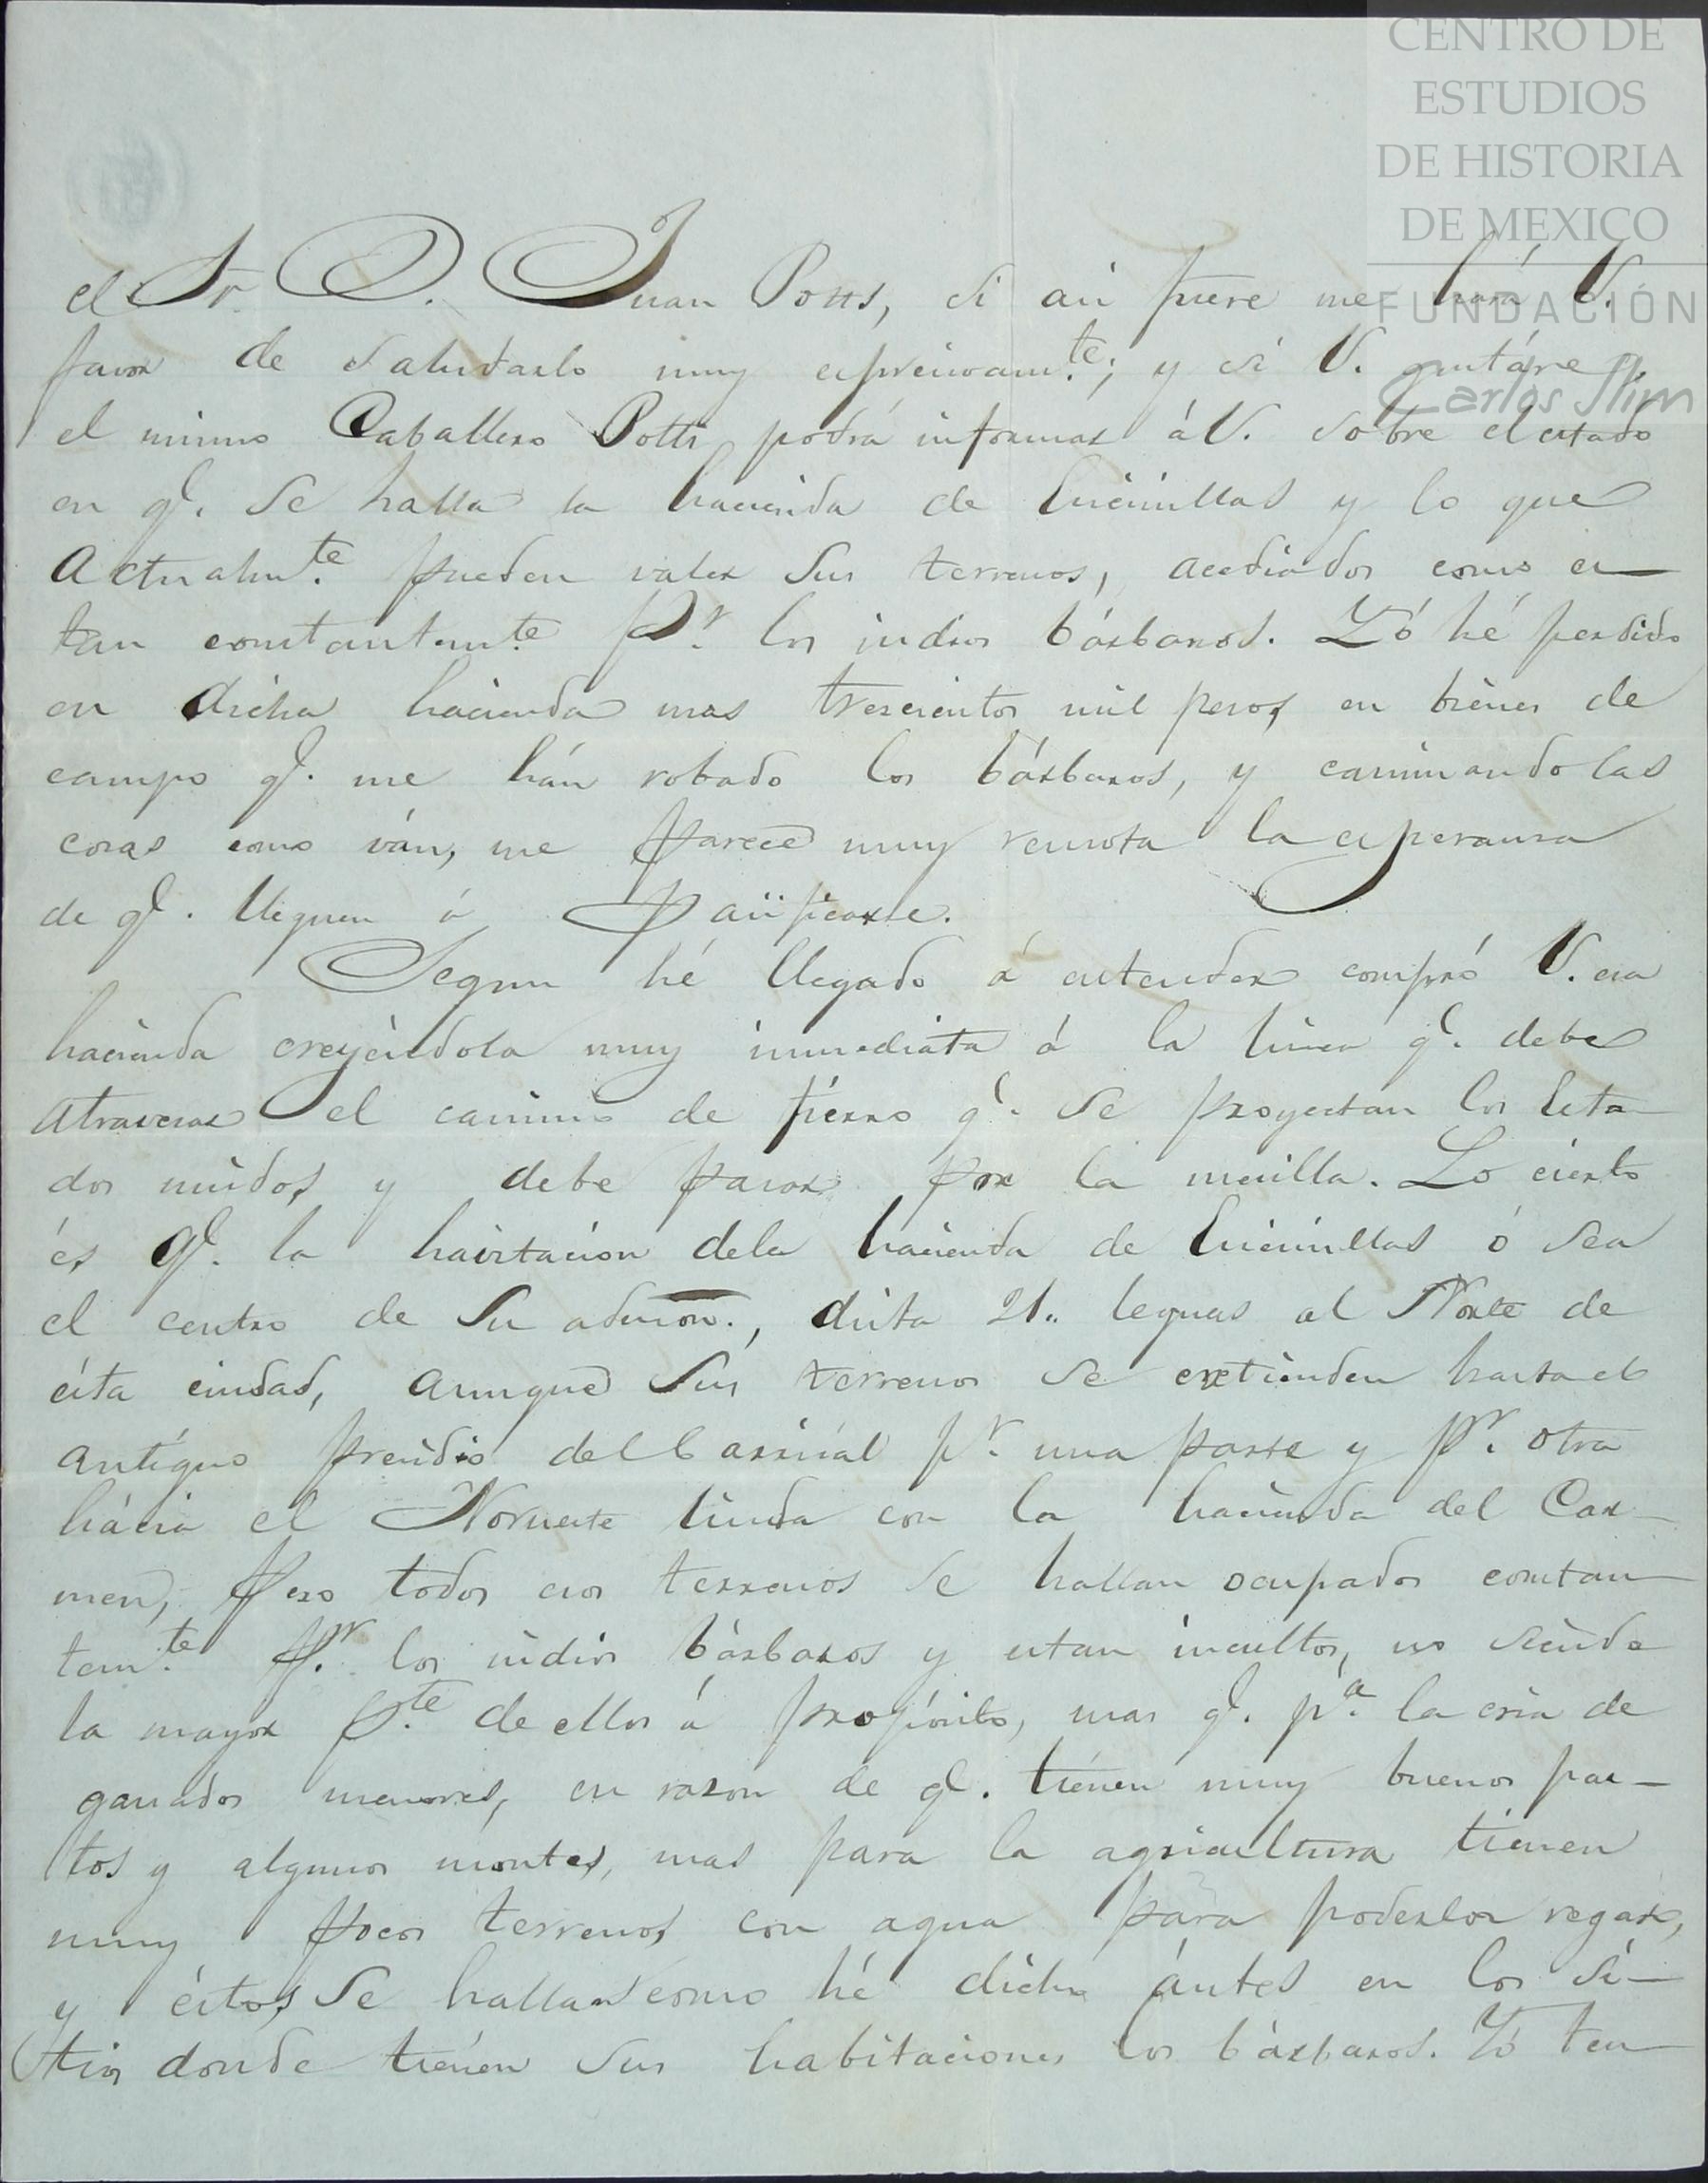 CENTRO DE
ESTUDIOS
DE HISTORIA
DE MEXICO
FUNDACIÓN
Carlos Slim
el Sr. D. Juan Potts, si asi fuere me hará V.
favor de saludarlo muy espresivam.te; y si V. gustáre,
el mismo Caballero Potts podrá informar á V. sobre el estado
en q.e se halla la hacienda de Encinillas y lo que
actualm.te pueden valer sus terrenos, acediados como es-
tan constantem.te p.r los indios bárbaros. Yó hé perdido
en dicha hacienda mas trescientos mil pesos en biénes de
campo q.e me hán robado los bárbaros, y caminando las
cosas como ván, me parece muy remota la esperansa
de q.e lleguen á pacificarse.
Segun hé llegado á entender compró V. esa
hacienda creyéndola muy inmediata á la linea q.e debe
atravesar el camino de fiérro q.e se proyectan los Esta-
dos unidos y debe pasar por la mesilla. Lo cierto
és q.e la havitacion dela hacienda de Encinillas ó sea
el centro de su admon., dista 21.. leguas al Norte de
ésta ciudad, aunque sus terrenos se extiénden hasta el
antíguo presidio del Carrisal p.r una parte y p.r otra
hácia el Norueste linda con la hacienda del Car-
men, pero todos esos terrenos se hallan ocupados constan-
tem.te p.r los indios bárbaros y estan incultos, no siéndo
la mayor p.te de ellos á propósito, mas q.e p.a la cria de
ganados menores, en rason de q.e tiénen muy buenos pas-
tos y algunos montes, mas para la agricultura tienen
muy pocos terrenos con agua para poderlos regar,
y éstos se hallan como hé dicho ántes en los si-
tios donde tiénen sus habitaciones los bárbaros. Yó ten-